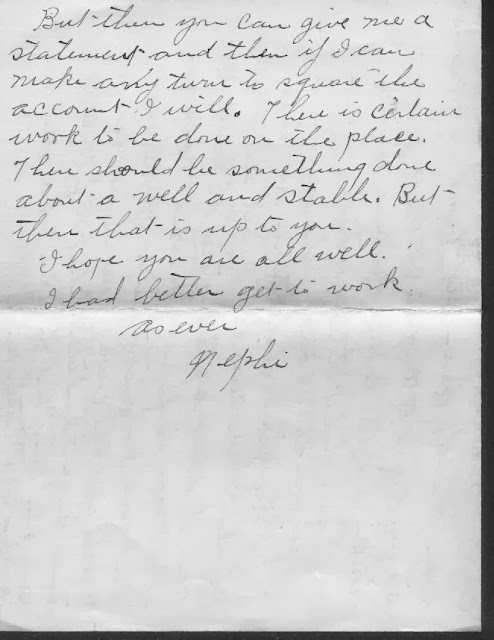 But then you can give me a
statement and then if I can
make any turn to square the
account I will. There is certain
work to be done on the place.
There should be something done
about a well and stable. But
then that is up to you.
I hope you are all well.
I had better get to work.
as ever
Nephi